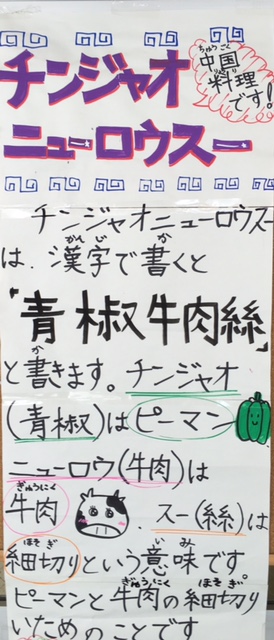 チンジャオ
ニューロウスー
ちゅうごく
中国
料理
です!
チンジャオニューロウスー
は、漢字で書くと
かんじ
か
「青椒牛肉絲」
と書きます。チンジャオ
か
(青椒)はピーマン
ニューロウ(牛肉)は
ぎゅうにく
牛肉
スー(絲)は
ほそぎ
細切りという意味です
いみ
ピーマンと牛肉の細切り
ぎゅうにく
ほそぎ
いためのことです